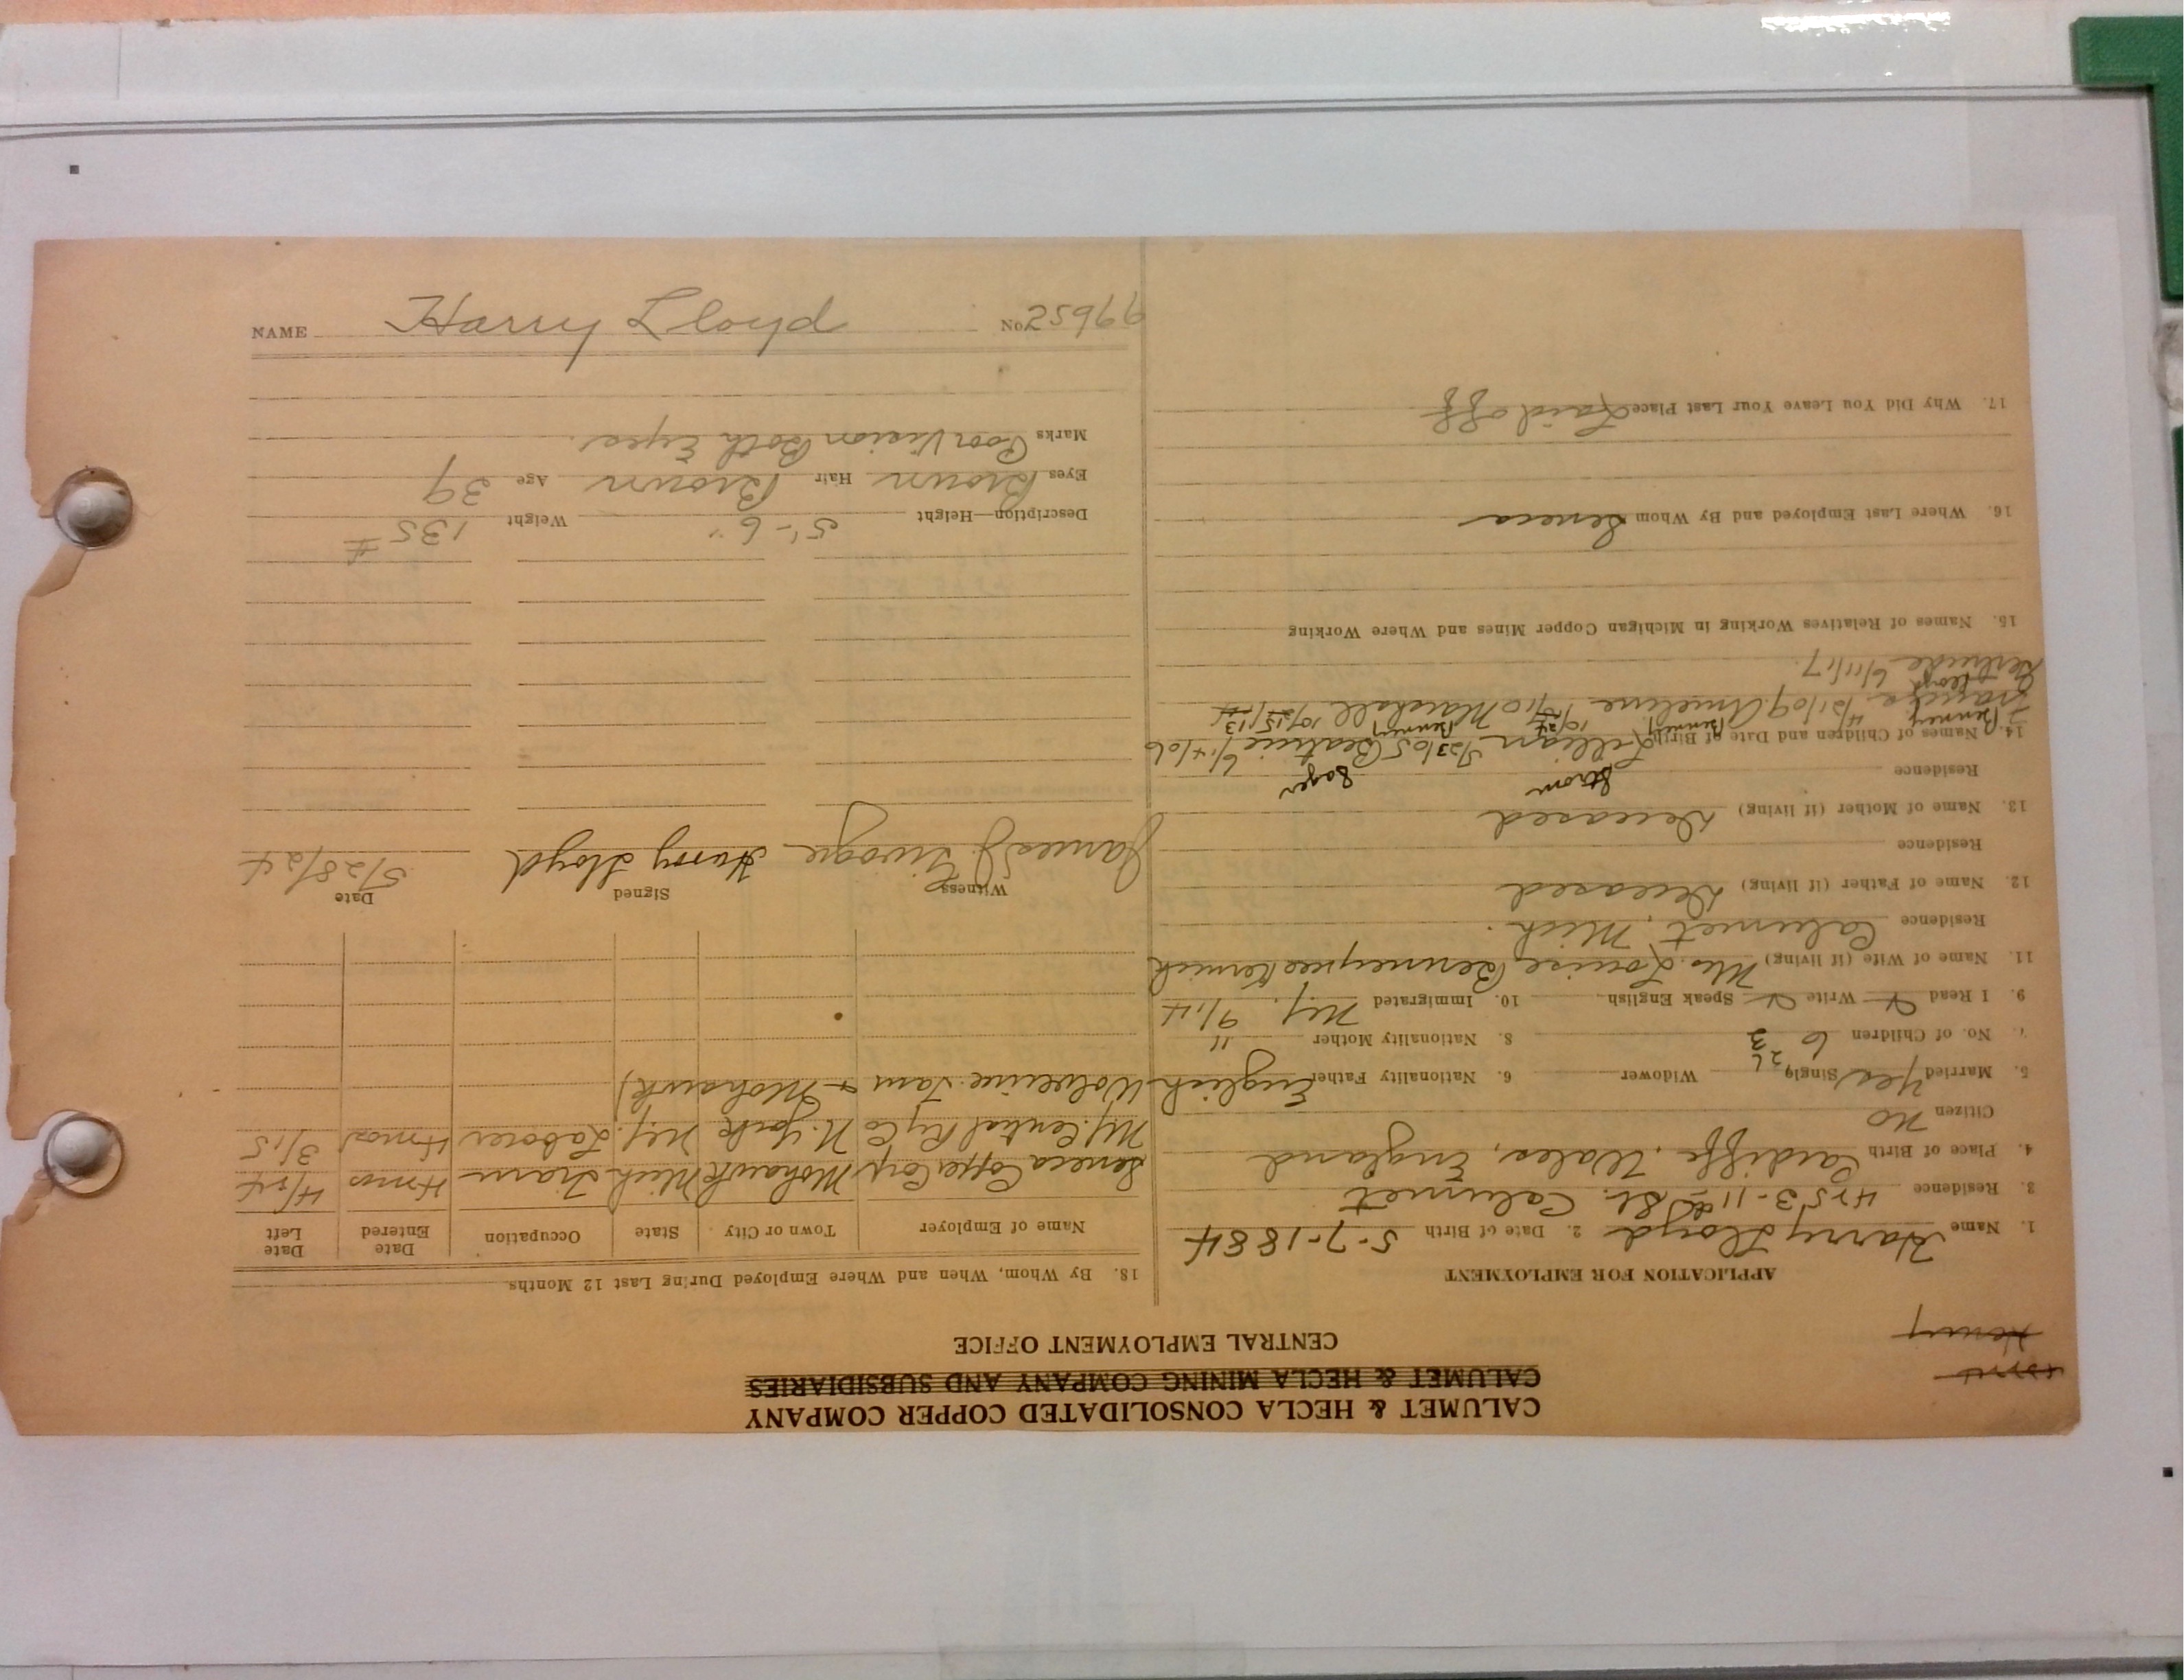 CALUMET & HECLA CONSOLIDATED COPPER COMPANY
CALUMET & HECLA MINING COMPANY AND SUBSIDIARIES
CENTRAL EMPLOYMENT OFFICE
Henry
APPLICATION FOR EMPLOYMENT
1. Name Harry Lloyd 2. Date of Birth 5-7-1884
3. Residence 4253-11th St. Calumet
4. Place of Birth Cardiff, Wales, England
Citizen no
5. Married Yes Single Widower 6. Nationality Father English
7. No. of Children 6 3 8. Nationality Mother "
9. I Read Write Speak English 10. Immigrated N.Y. 9/14
11. Name of Wife (if living) Mrs. Louise Benney nee Kernick
Residence Calumet, Mich.
12. Name of Father (if living) Deceased
Residence
13. Name of Mother (if living) Deceased
Residence
Strom Sager
14. Names of Children and Date of Birth Lillian 7/23/05 Beatrice 6/14/06
Benney Benney Benney
4/21/09 Emeline 10/24/10 Marshall 10/15/13
Lloyd
Gertrude 6/11/17
15. Names of Relatives Working in Michigan Copper Mines and Where Working
16. Where Last Employed and By Whom Seneca
17. Why Did You Leave Your Last Place Laid off
18. By Whom, When and Where Employed During Last 12 Months
Name of Employer Town or City State Occupation Date Entered Date Left
Seneca Copper Corp Mohawk Mich Tram 4 mos 4/24
N.Y. Central Ry Co N. York N.Y. Laborer 4 mos 3/15
Wolverine Tam & Mohawk)
Witness Signed Date
James J. Harry Lloyd 5/28/24
Description—Height 5'-6" Weight 135#
Eyes Brown Hair Brown Age 39
Marks Poor Vision Both Eyes.
NAME Harry Lloyd No. 25699